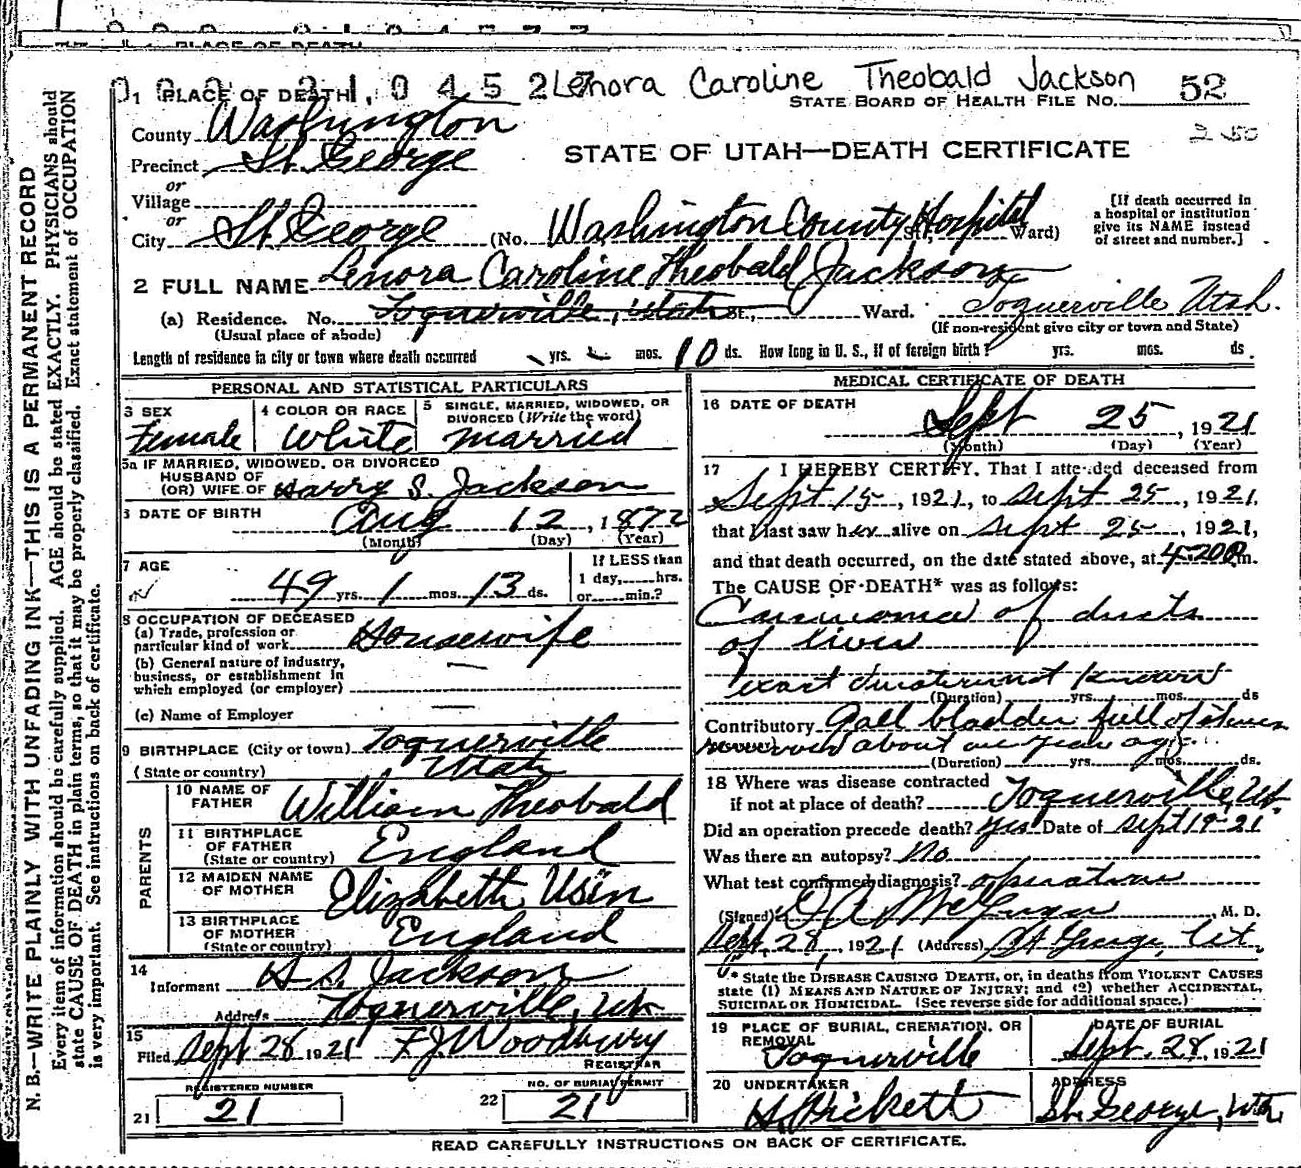 PLACE OF DEATH
0 0 2 2 1 0 4 5 2 7
Lenora Caroline Theobald Jackson
STATE BOARD OF HEALTH FILE NO. 52
2 50
1 PLACE OF DEATH
County Washington
Precinct St George
STATE OF UTAH—DEATH CERTIFICATE
or
Village
or
City St George (No. Washington County Hospital St., Ward)
[If death occurred in
a hospital or institution
give its NAME instead
of street and number.]
2 FULL NAME Lenora Caroline Theobald Jackson
(a) Residence. No. Toquerville, Utah St., Ward. Toquerville Utah.
(Usual place of abode) (If non-resident give city or town and State)
Length of residence in city or town where death occurred yrs. mos. 10 ds. How long in U. S., if of foreign birth? yrs. mos. ds
PERSONAL AND STATISTICAL PARTICULARS
3 SEX Female
4 COLOR OR RACE White
5 SINGLE, MARRIED, WIDOWED, OR
DIVORCED (Write the word)
married
5a IF MARRIED, WIDOWED, OR DIVORCED
HUSBAND OF
(OR) WIFE OF Harry S. Jackson
6 DATE OF BIRTH Aug 12, 1872
(Month) (Day) (Year)
7 AGE
49 yrs. 1 mos. 13 ds.
If LESS than
1 day, hrs.
or min.?
8 OCCUPATION OF DECEASED
(a) Trade, profession or
particular kind of work Housewife
(b) General nature of industry,
business, or establishment in
which employed (or employer) —
(c) Name of Employer —
9 BIRTHPLACE (City or town) Toquerville
(State or country) Utah
PARENTS
10 NAME OF
FATHER William Theobald
11 BIRTHPLACE
OF FATHER
(State or country) England
12 MAIDEN NAME
OF MOTHER Elizabeth Usin
13 BIRTHPLACE
OF MOTHER
(State or country) England
14
Informant H S. Jackson
Address Toquerville, Ut
15
Filed Sept 28 1921 F. J. Woodbury
REGISTRAR
REGISTERED NUMBER
21 21
NO. OF BURIAL PERMIT
22 21
MEDICAL CERTIFICATE OF DEATH
16 DATE OF DEATH
Sept 25, 1921
(Month) (Day) (Year)
17 I HEREBY CERTIFY, That I attended deceased from
Sept 15, 1921, to Sept 25, 1921,
that I last saw her alive on Sept 25, 1921,
and that death occurred, on the date stated above, at 4-20 P.m.
The CAUSE OF DEATH* was as follows:
Carcinoma of ducts
of liver
exact duration not known
(Duration) yrs. mos. ds
Contributory Gall bladder full of stones
removed about one year ago
(Duration) yrs. mos. ds.
18 Where was disease contracted
if not at place of death? Toquerville, Ut.
Did an operation precede death? Yes Date of Sept 19-21
Was there an autopsy? No
What test confirmed diagnosis? operation
(Signed) M. D.
Sept. 28, 1921 (Address) St George, Ut.
* State the DISEASE CAUSING DEATH, or, in deaths from VIOLENT CAUSES
state (1) MEANS AND NATURE OF INJURY; and (2) whether ACCIDENTAL,
SUICIDAL OR HOMICIDAL. (See reverse side for additional space.)
19 PLACE OF BURIAL, CREMATION, OR
REMOVAL
Toquerville
DATE OF BURIAL
Sept. 28, 1921
20 UNDERTAKER
ADDRESS
St. George, Utah
READ CAREFULLY INSTRUCTIONS ON BACK OF CERTIFICATE.
N. B.—WRITE PLAINLY WITH UNFADING INK—THIS IS A PERMANENT RECORD
Every item of information should be carefully supplied. AGE should be stated EXACTLY. PHYSICIANS should
state CAUSE OF DEATH in plain terms, so that it may be properly classified. Exact statement of OCCUPATION
is very important. See instructions on back of certificate.